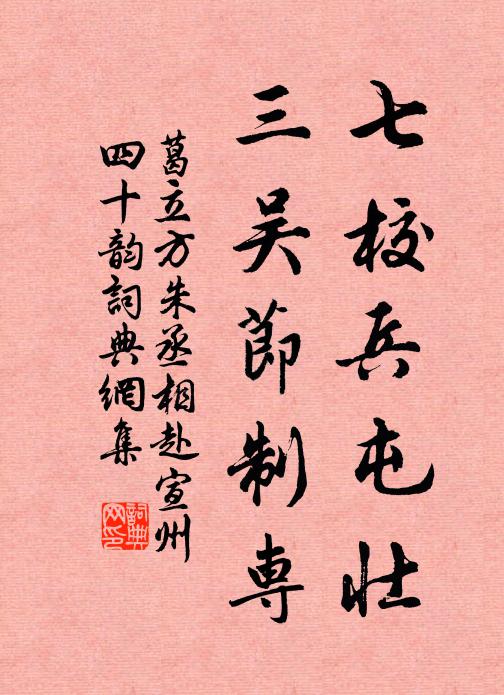 七校兵屯壮
三吴節制専
葛立方朱丞相赴宣州
四十韵詞典網集
詞典
网印